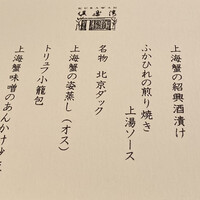 上海蟹の紹興酒漬け
ふかひれの煎り焼き
上湯ソース
名物 北京ダック
上海蟹の姿蒸し(オス)
トリュフ小籠包
上海蟹味噌のあんかけ